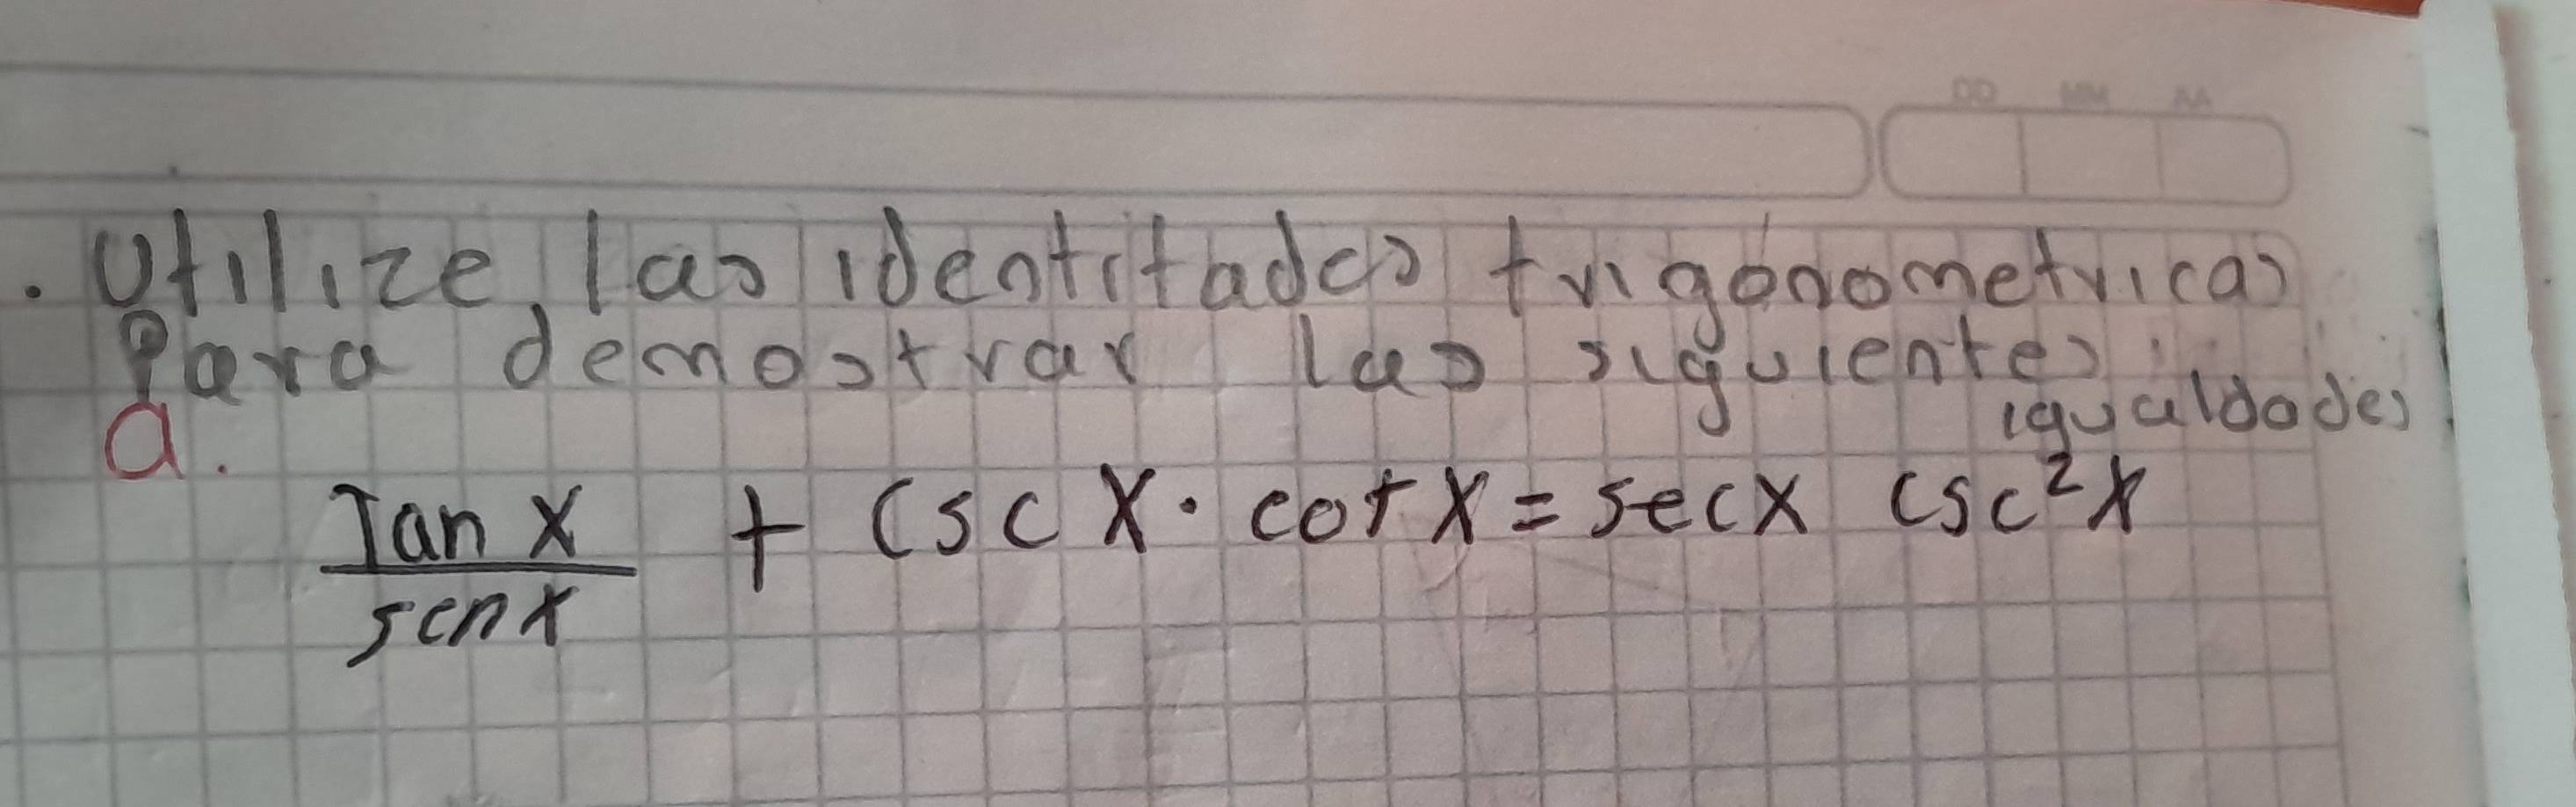 DD MM AA
. Utilize, las identitades trigonometricas
Para demostrar las siguientes
igualdades
a.
Tan x / sen x + csc x · cot x = sec x csc²x